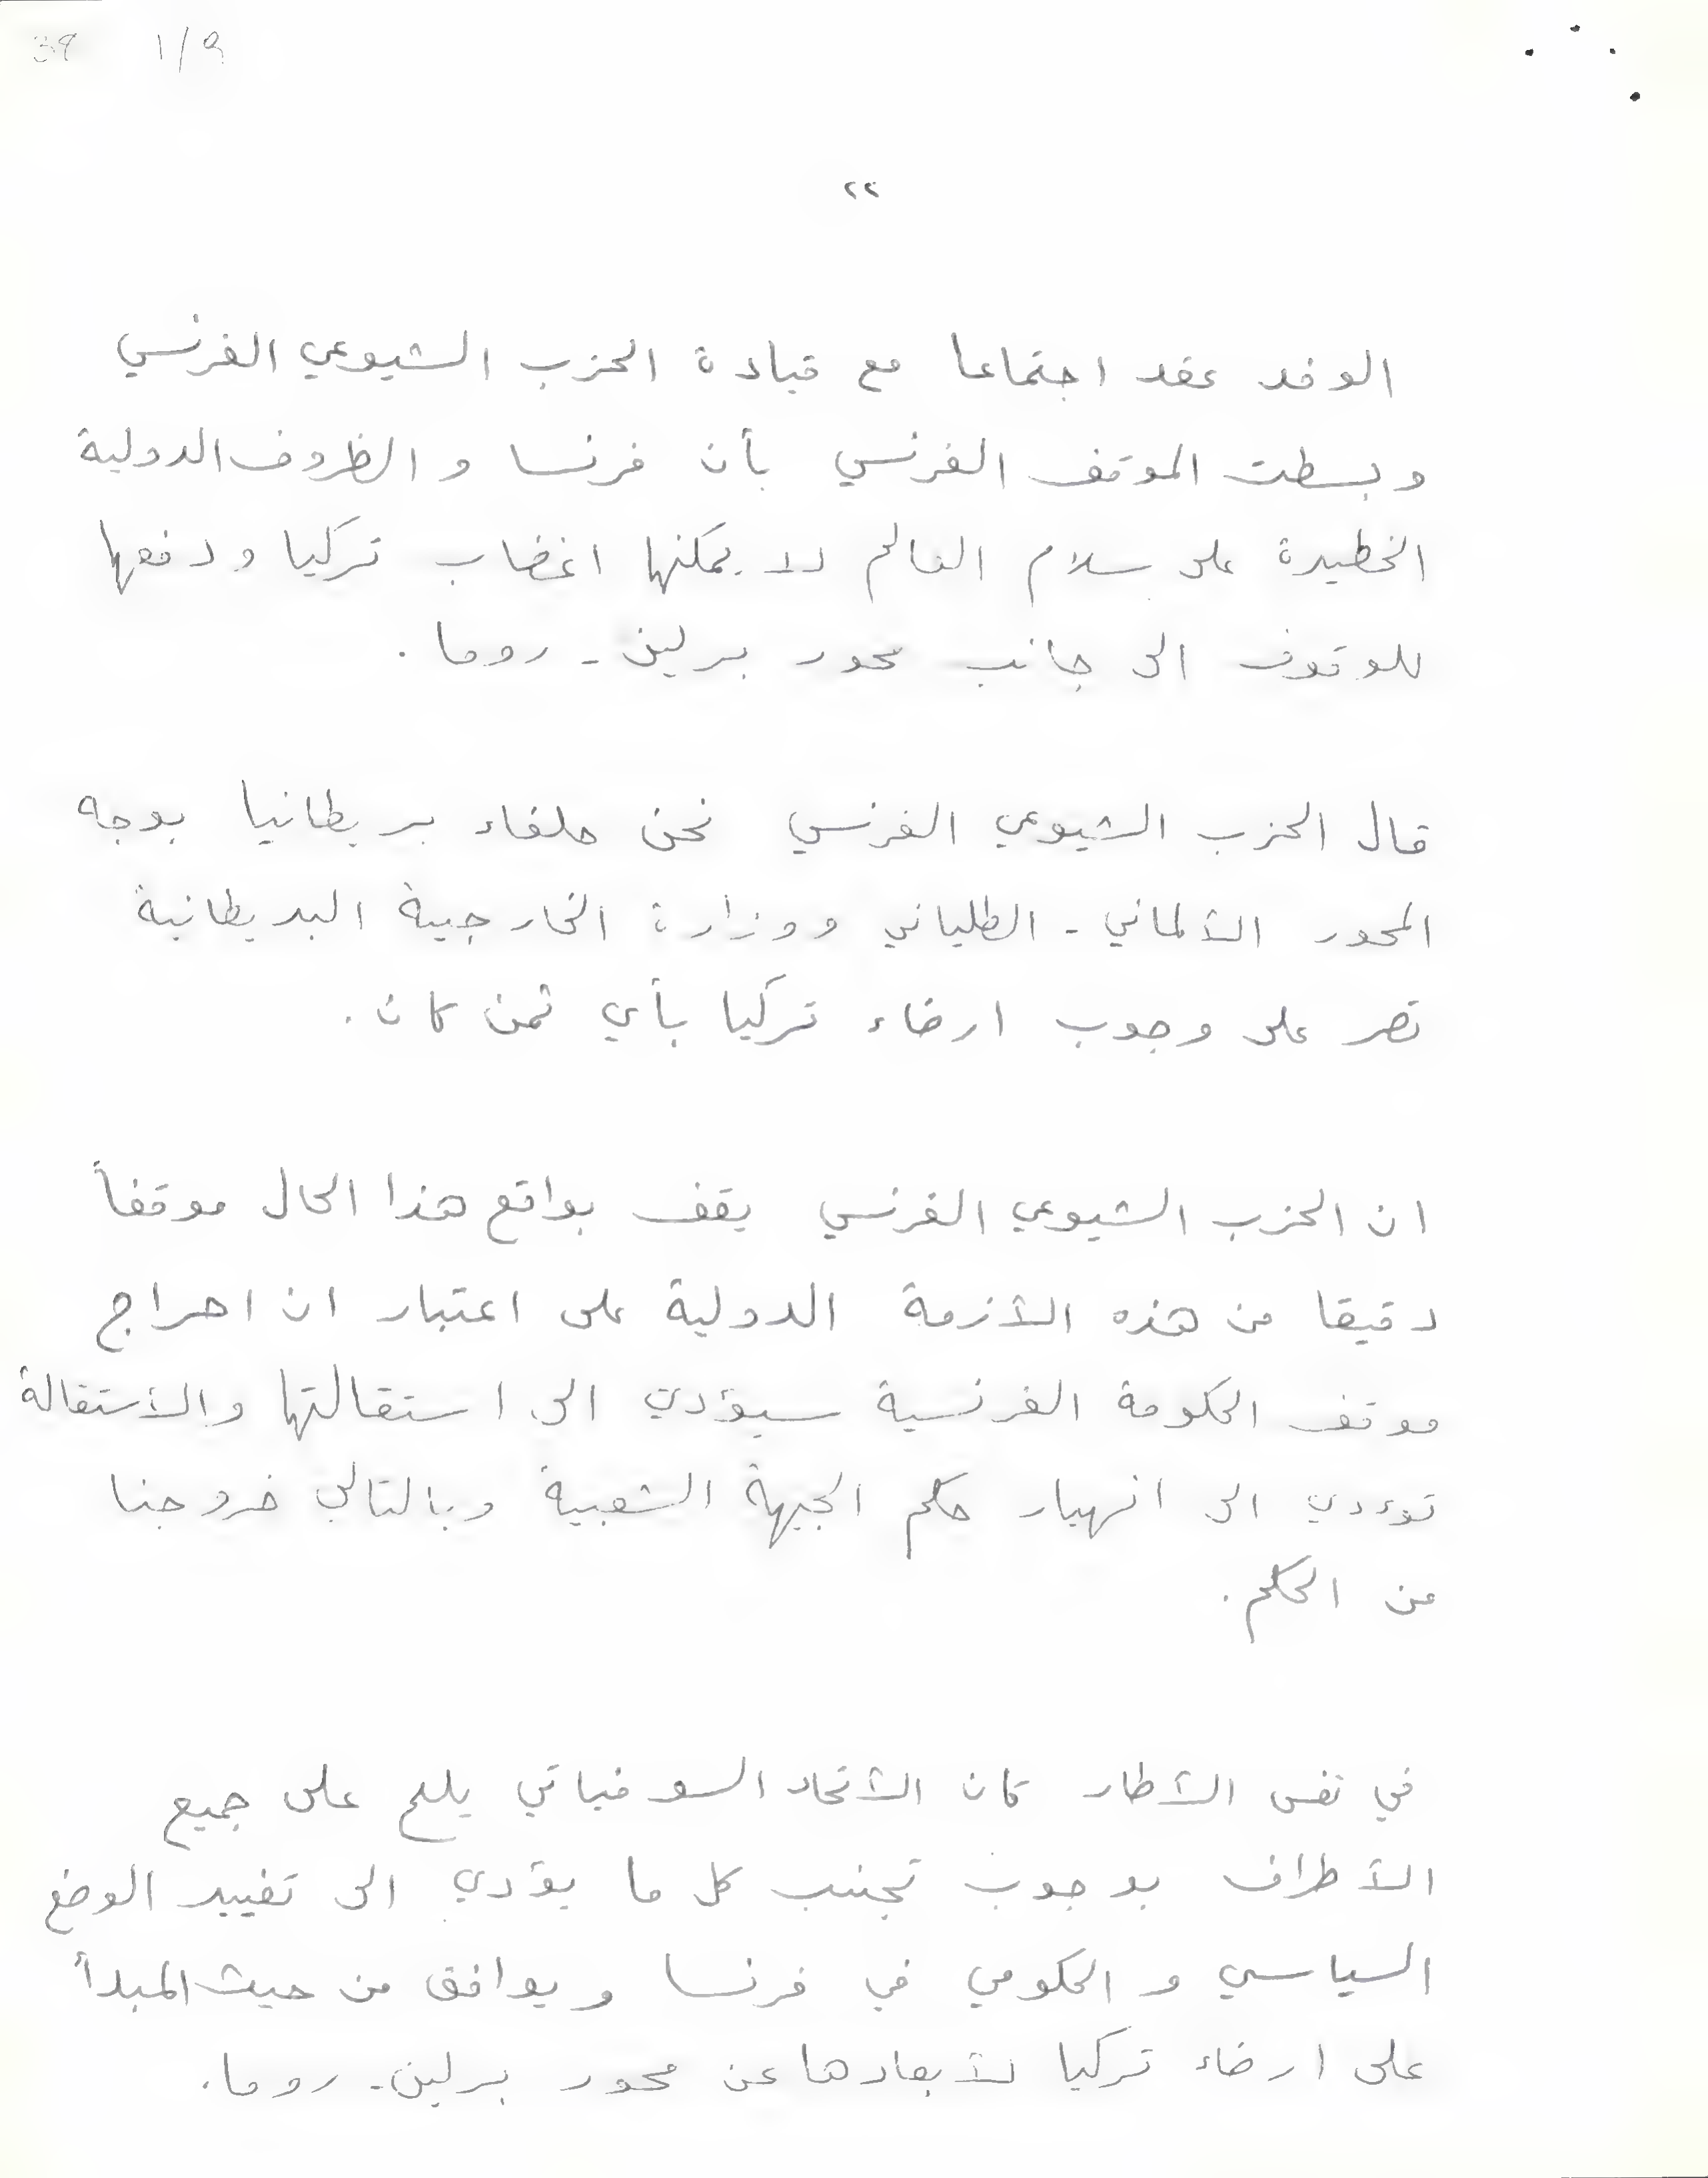 39 1/9
٢٢
الوفد عقد اجتماعا مع قيادة الحزب الشيوعي الفرنسي
وبسطت الموقف الفرنسي بأن فرنسا و الظروف الدولية
الخطيرة على سلام العالم لا يمكنها اغضاب تركيا ودفعها
للوقوف الى جانب محور برلين - روما .
قال الحزب الشيوعي الفرنسي نحن حلفاء بريطانيا بوجه
المحور الألماني - الطلياني ووزارة الخارجية البريطانية
تصر على وجوب ارضاء تركيا بأي ثمن كان .
ان الحزب الشيوعي الفرنسي يقف بواقع هذا الحال موقفاً
دقيقا من هذه الأزمة الدولية على اعتبار ان احراج
موقف الحكومة الفرنسية سيؤدي الى استقالتها والأستقالة
توءدي الى انهيار حكم الجبهة الشعبية وبالتالي خروجنا
من الحكم .
في نفس الأطار كان الأتحاد السوفياتي يلح على جميع
الأطراف بوجوب تجنب كل ما يؤدي الى تغيير الوضع
السياسي و الحكومي في فرنسا ويوافق من حيث المبدأ
على ارضاء تركيا لأبعادها عن محور برلين - روما .